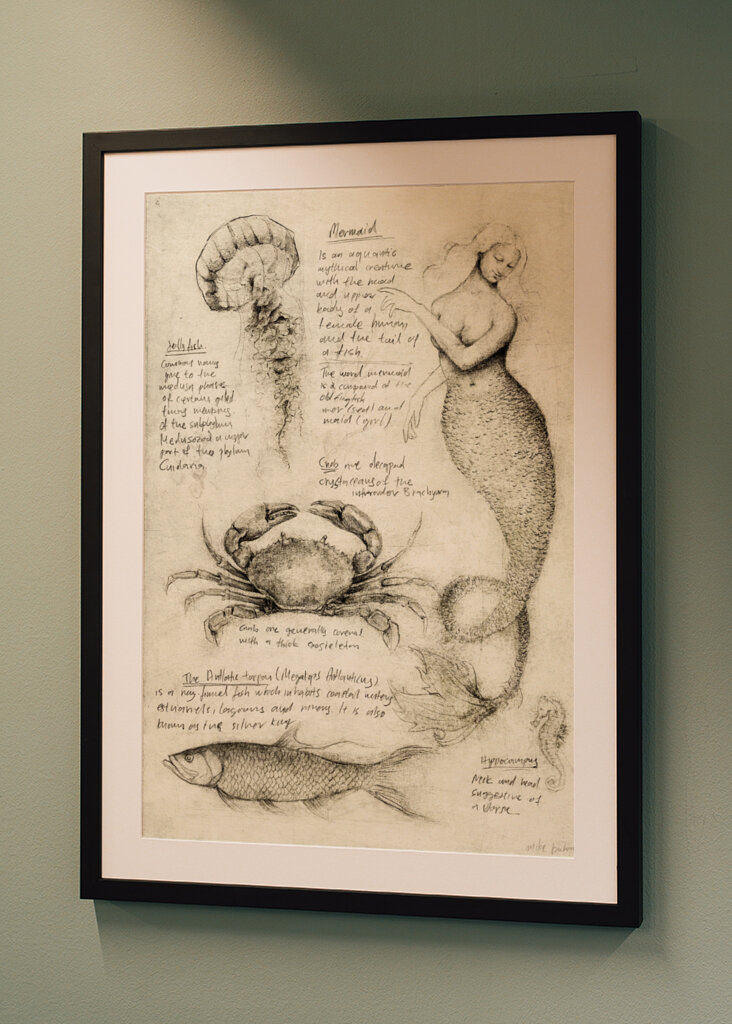 Mermaid
Is an aquatic
mythical creature
with the head
and upper
body of a
female human
and the tail of
a fish.
The word mermaid
is a compound of the
old english
mer (sea) and
maid (girl)
Jelly fish.
Common name
give to the
medusa phase
of certain
members
of the subphylum
Medusozoa a
part of the phylum
Cnidaria
Crab are decapod
crustaceans of the
Brachyura
Crab are generally covered
with a thick exoskeleton
The Atlantic tarpon (Megalops Atlanticus)
is a ray finned fish which inhabits coastal waters,
lagoons and rivers. It is also
known as the silver king
Hippocampus
Neck and head
suggestive of
a horse
mike